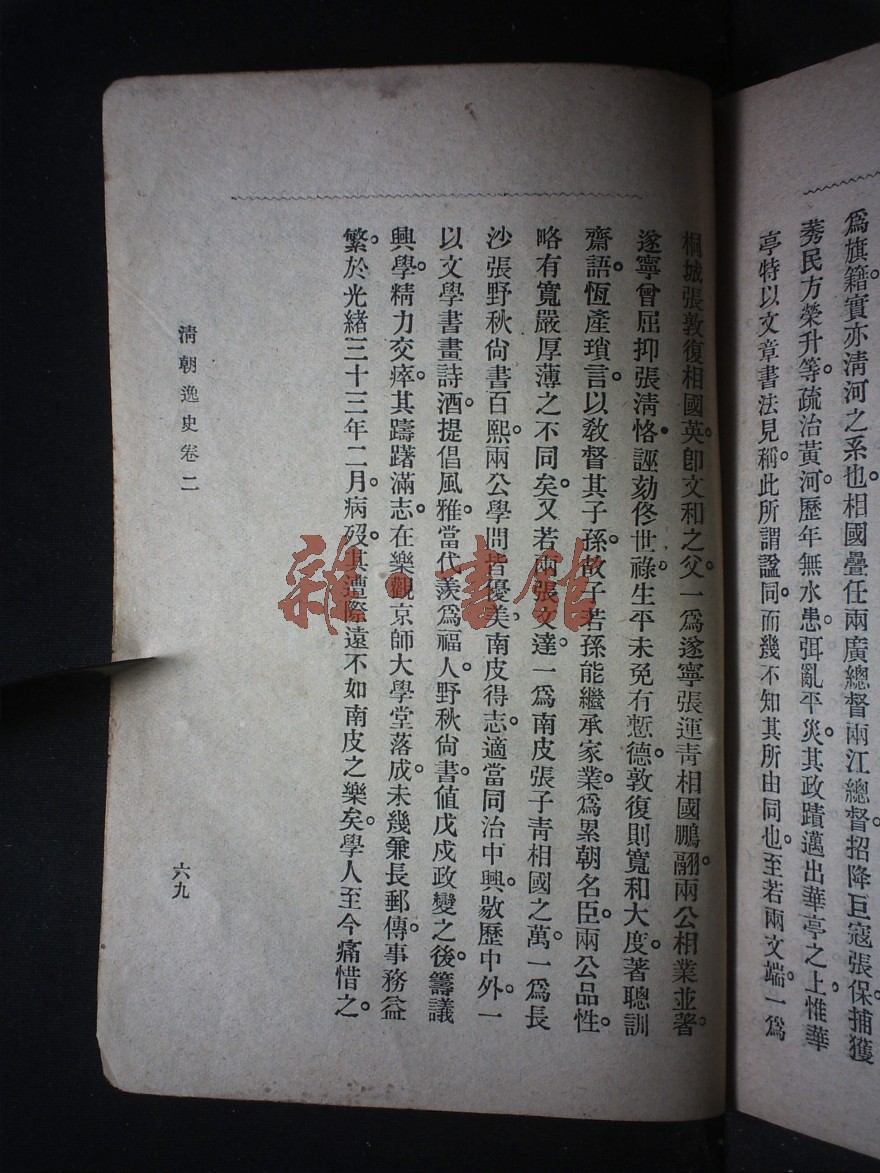 爲旗籍。實亦淸河之系也。相國疊任兩廣總督兩江總督。招降巨寇張保。捕獲
莠民方榮升等。疏治黃河。歷年無水患。弭亂平災。其政蹟邁出華亭之上。惟華
亭特以文章書法見稱。此所謂謚同。而幾不知其所由同也。至若兩文端。一爲
桐城張敦復相國英。卽文和之父。一爲遂寧張運靑相國鵬翮。兩公相業並著。
遂寧曾屈抑張淸恪。誣劾佟世祿。生平未免有慙德。敦復則寬和大度。著聰訓
齋語。恆產瑣言。以敎督其子孫。故子若孫能繼承家業。爲累朝名臣。兩公品性。
略有寬嚴厚薄之不同矣。又若兩張文達。一爲南皮張子靑相國之萬。一爲長
沙張野秋尙書百熙。兩公學問皆優美。南皮得志。適當同治中興。敭歷中外。一
以文學書畫詩酒。提倡風雅。當代羨爲福人。野秋尙書。値戊戌政變之後。籌議
興學。精力交瘁。其躊躇滿志。在樂觀京師大學堂落成。未幾兼長郵傳。事務益
繁。於光緖三十三年二月。病歿。其遭際遠不如南皮之樂矣。學人至今痛惜之。
淸朝逸史卷二
六九
雜·書館